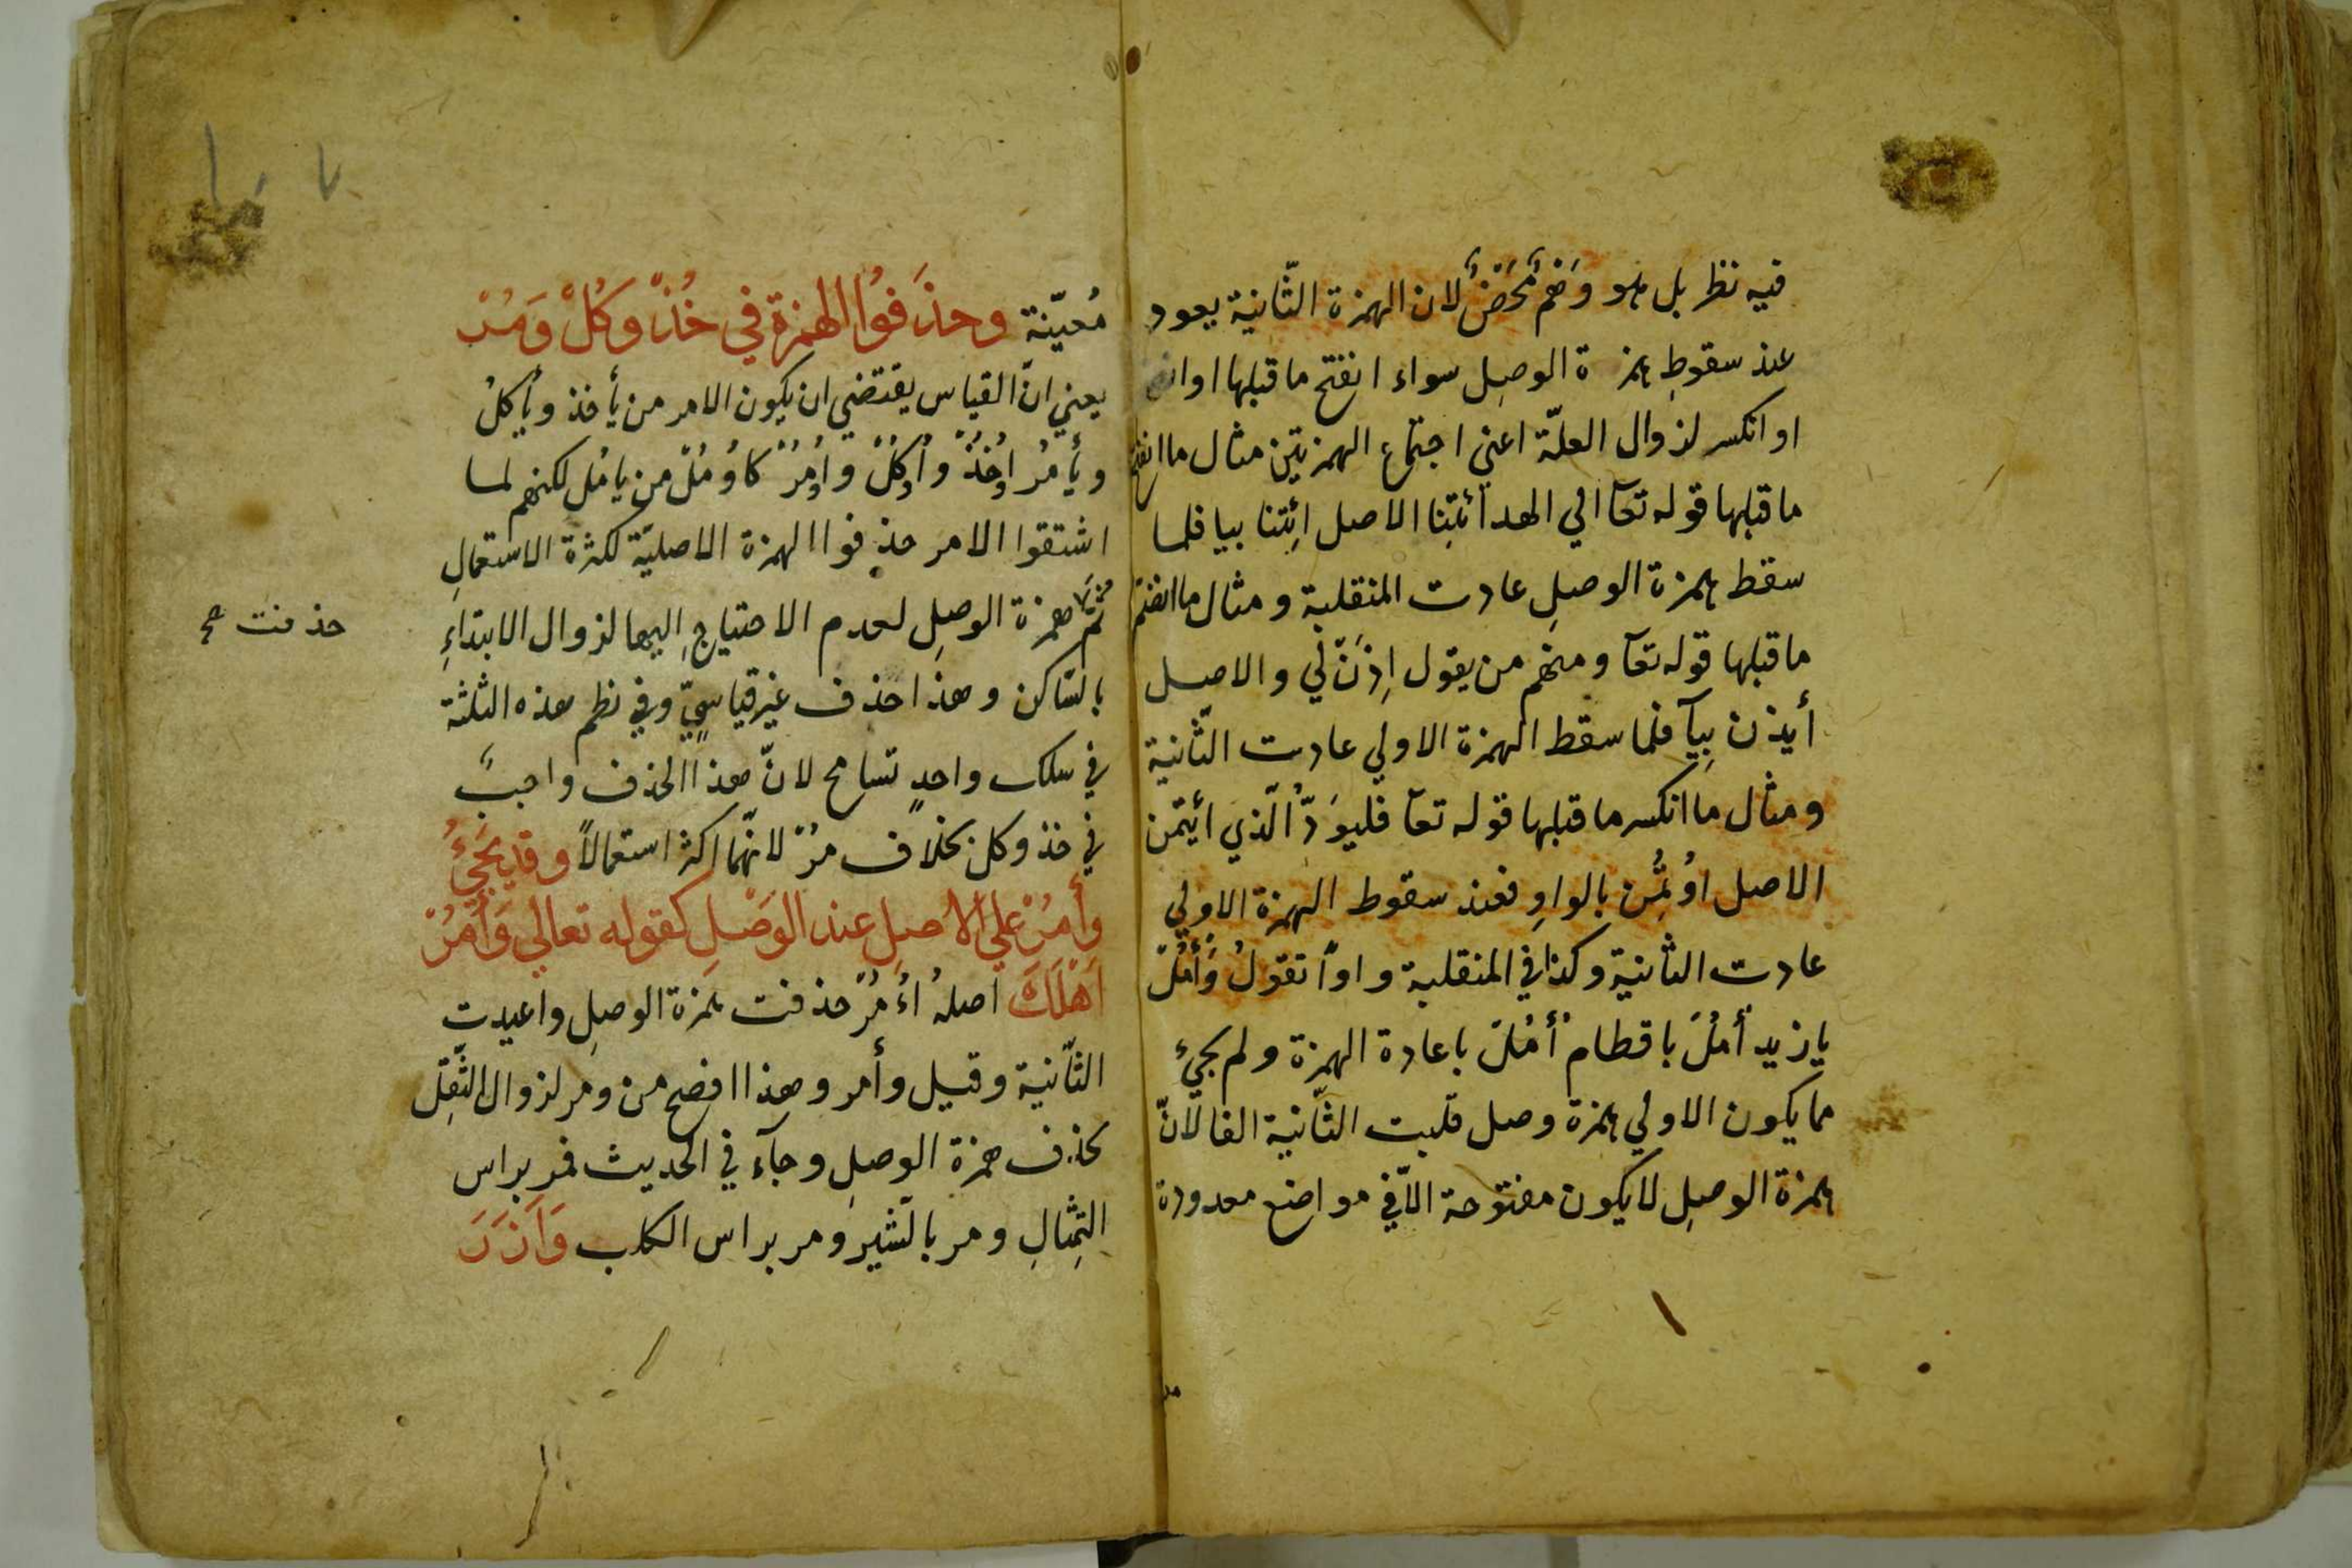 فيه نظر بل هو وَهْمٌ مَحْضٌ لان الهمزة الثّانية يعود
عند سقوطِ همزة الوصِل سواء انفتح ما قبلها او انضم
او انكسر لزوال العلّة اعني اجتماع الهمزتين مثال ما انفتح
ما قبلها قوله تعآ الي الهدأئتِنا الاصل ائِتنا بيا فلما
سقط همزة الوصلِ عادت المنقلبة ومثال ما انضم
ما قبلها قوله تعآ ومنهم من يقول اِذنَ لّي والاصل
أيذن بِيآ فلما سقط الهمزة الاولي عادت الثّانية
ومثال ما انكسر ما قبلها قوله تعآ فليوَدّ الّذي ائتمن
الاصل اوُتمُِن بالواوِ فعند سقوط الهمزة الاولي
عادت الثانية وكذا في المنقلبة واواً تقولُ وَأْمُلْ
يا زيد أْمُلْ يا قطام أْمُلْ باعادة الهمزة ولم يجيء
مما يكون الاولي همزة وصل قلبت الثّانية الفا لانّ
همزة الوصلِ لا يكون مفتوحة الاّ في مواضع معدودة
مُعيّنة وحذَفُوا الهمزة في خُذْ وكُلْ وَمُرْ
يعني انّ القياس يقتضي ان يكون الامر من يأخذ ويأكلُ
ويأمُر اوُخُذْ واُوكُلْ واُومُرْ كاوُمُلْ من يامُل لكنهم لما
اشتقوا الامر حذفوا الهمزة الاصليّة لكثرة الاستعمالِ
ثمّ همزة الوصلِ لعدم الاحتياجِ اِليها لزوال الابتداءِ
حذفت صح
بالسّاكن وهذا حذف غير قياسيّ وفي نظم هذه الثلثة
في سلك واحدٍ تسامح لانّ هذا الحذف واجبٌ
في خذ وكل بخلاف مرْ لانهّما اكثر استعمالاً وقد يَجيُ
وأمُرْ علي الاصلِ عند الوَصْلِ كقوله تعالي وَأْمُرْ
اَهْلَكَ اصلهُ اءُْمُرْ حذفت همزة الوصلِ واعيدت
الثّانية وقيل وأمر وهذا افصح من ومر لزوال الثّقِل
بحذف همزة الوصلِ وجآء في الحديث فمر براس
التِمثالِ ومر بالسّتير ومر براس الكلب وَاَزَرَ